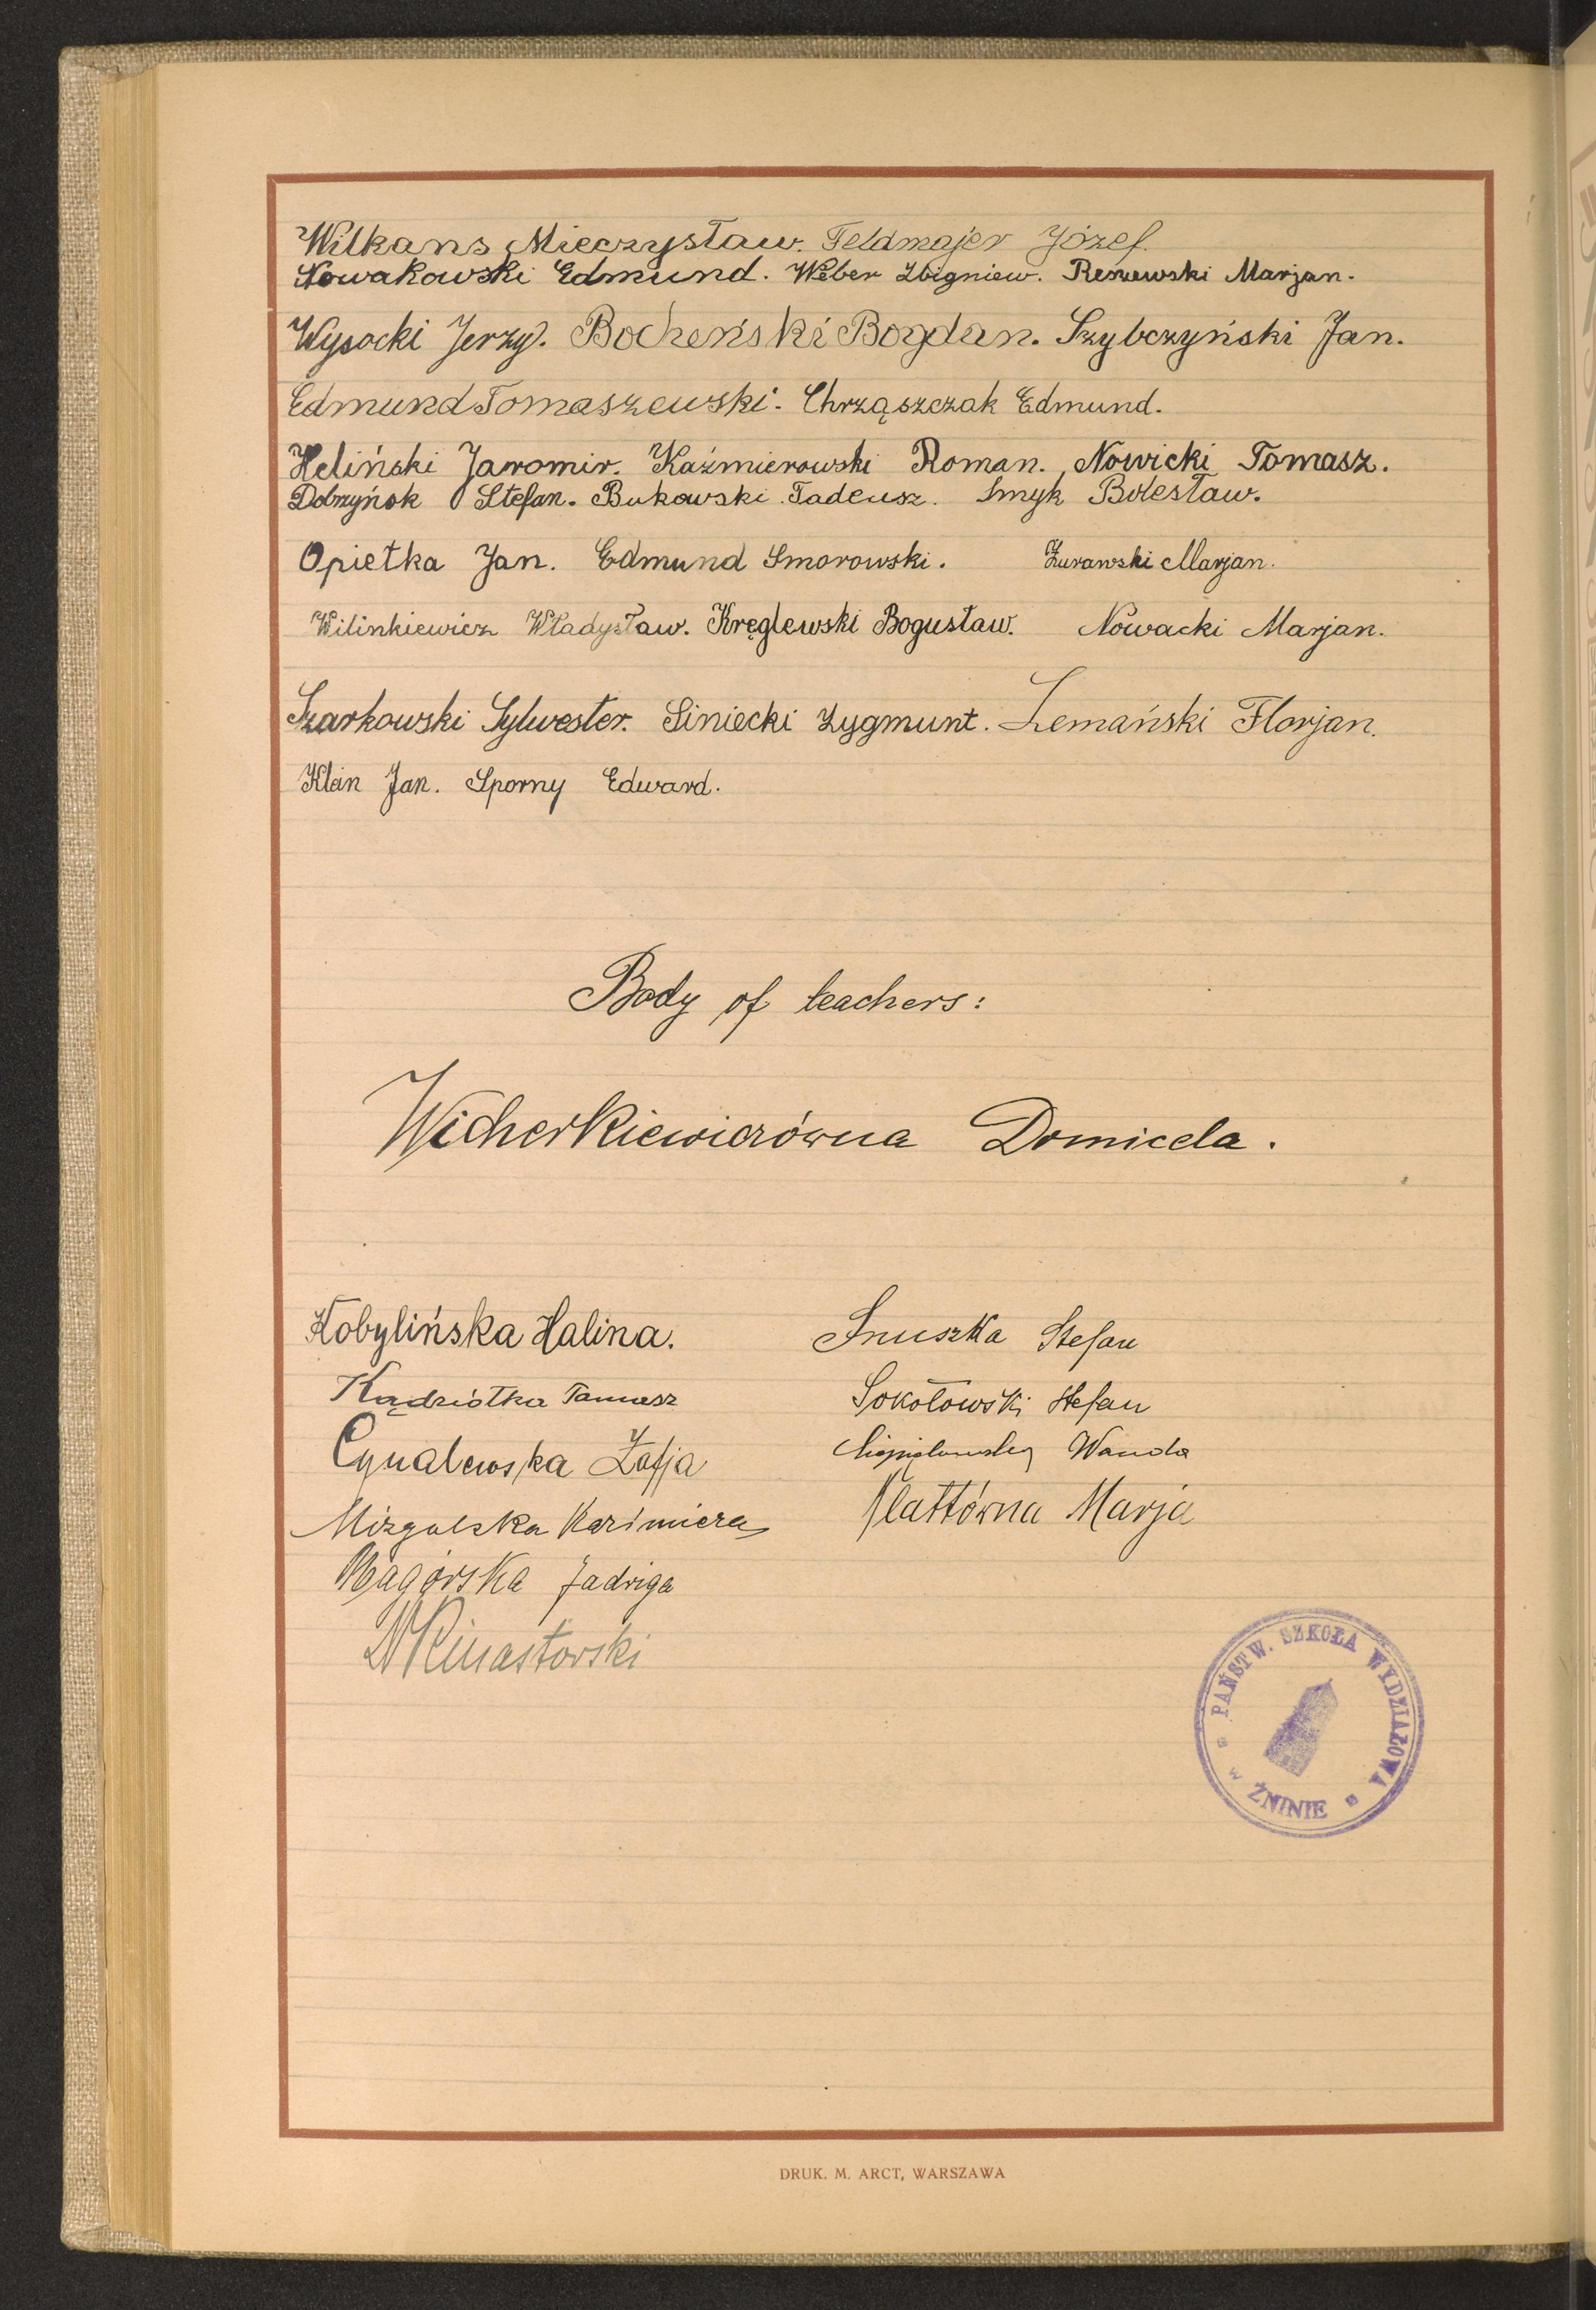 Wilkans Mieczysław. Feldmajer Józef.
Nowakowski Edmund. Weber Zbigniew. Reszewski Marjan.
Wysocki Jerzy. Bocheński Bogdan. Szybczyński Jan.
Edmund Tomaszewski. Chrząszczak Edmund.
Heliński Jaromir. Kaźmierowski Roman. Nowicki Tomasz.
Stefan. Bukowski Tadeusz. Smyk Bolesław.
Opiełka Jan. Edmund Smorowski. Żurawski Marjan.
Wilinkiewicz Władysław. Kręglewski Bogusław. Nowacki Marjan.
Szarkowski Sylwester. Siniecki Zygmunt. Zemański Florjan.
Klein Jan. Sporny Edward.
Body of teachers:
Wicherkiewiczówna Domicela.
Kobylińska Halina. Snuszka Stefan
Kądziołka Tomasz Sokołowski Stefan
Cynalewska Zofja Wanda
Mizgalska Kazimiera Plattówna Marja
Nagórska Jadwiga
PAŃSTW. SZKOŁA WYDZIAŁOWA
w ŻNINIE
DRUK. M. ARCT, WARSZAWA